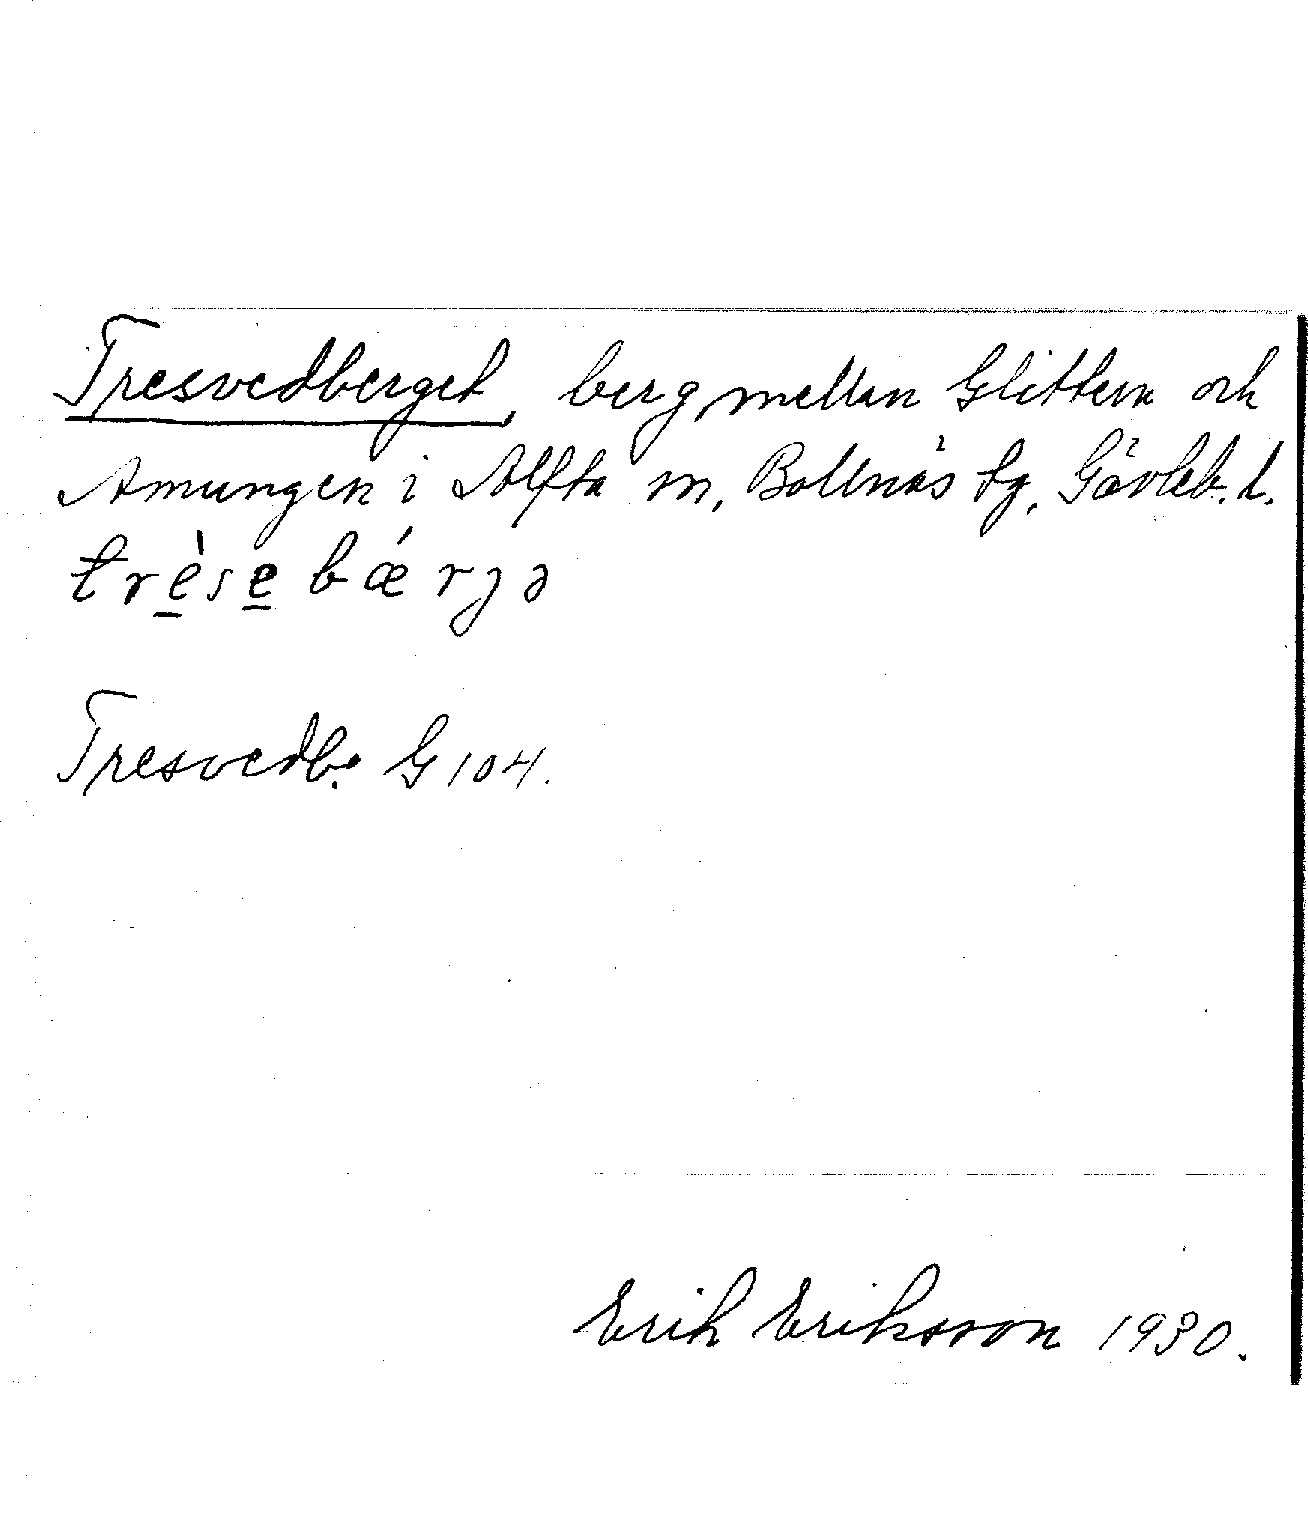 Tresvedberget, berg mellan Glittern och
Amungen i Alfta sn, Bollnäs tg, Gävleb. l.
trèsebǽrȷə
Tresvedb. G 104.
Erik Eriksson 1930.